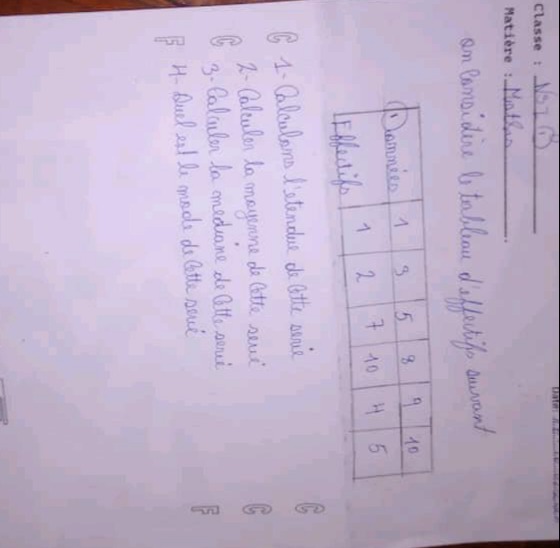 Classe :
Matière : Maths
On considère le tableau d'effectifs suivant
Données 1 3 5 8 9 10
Effectifs 1 2 7 10 4 5
C 1- Calculons l'étendue de cette serie C
C 2- Calculer la moyenne de cette serie C
3- Calculer la mediane de cette serié
F 4- Quel est le mode de cette serié F